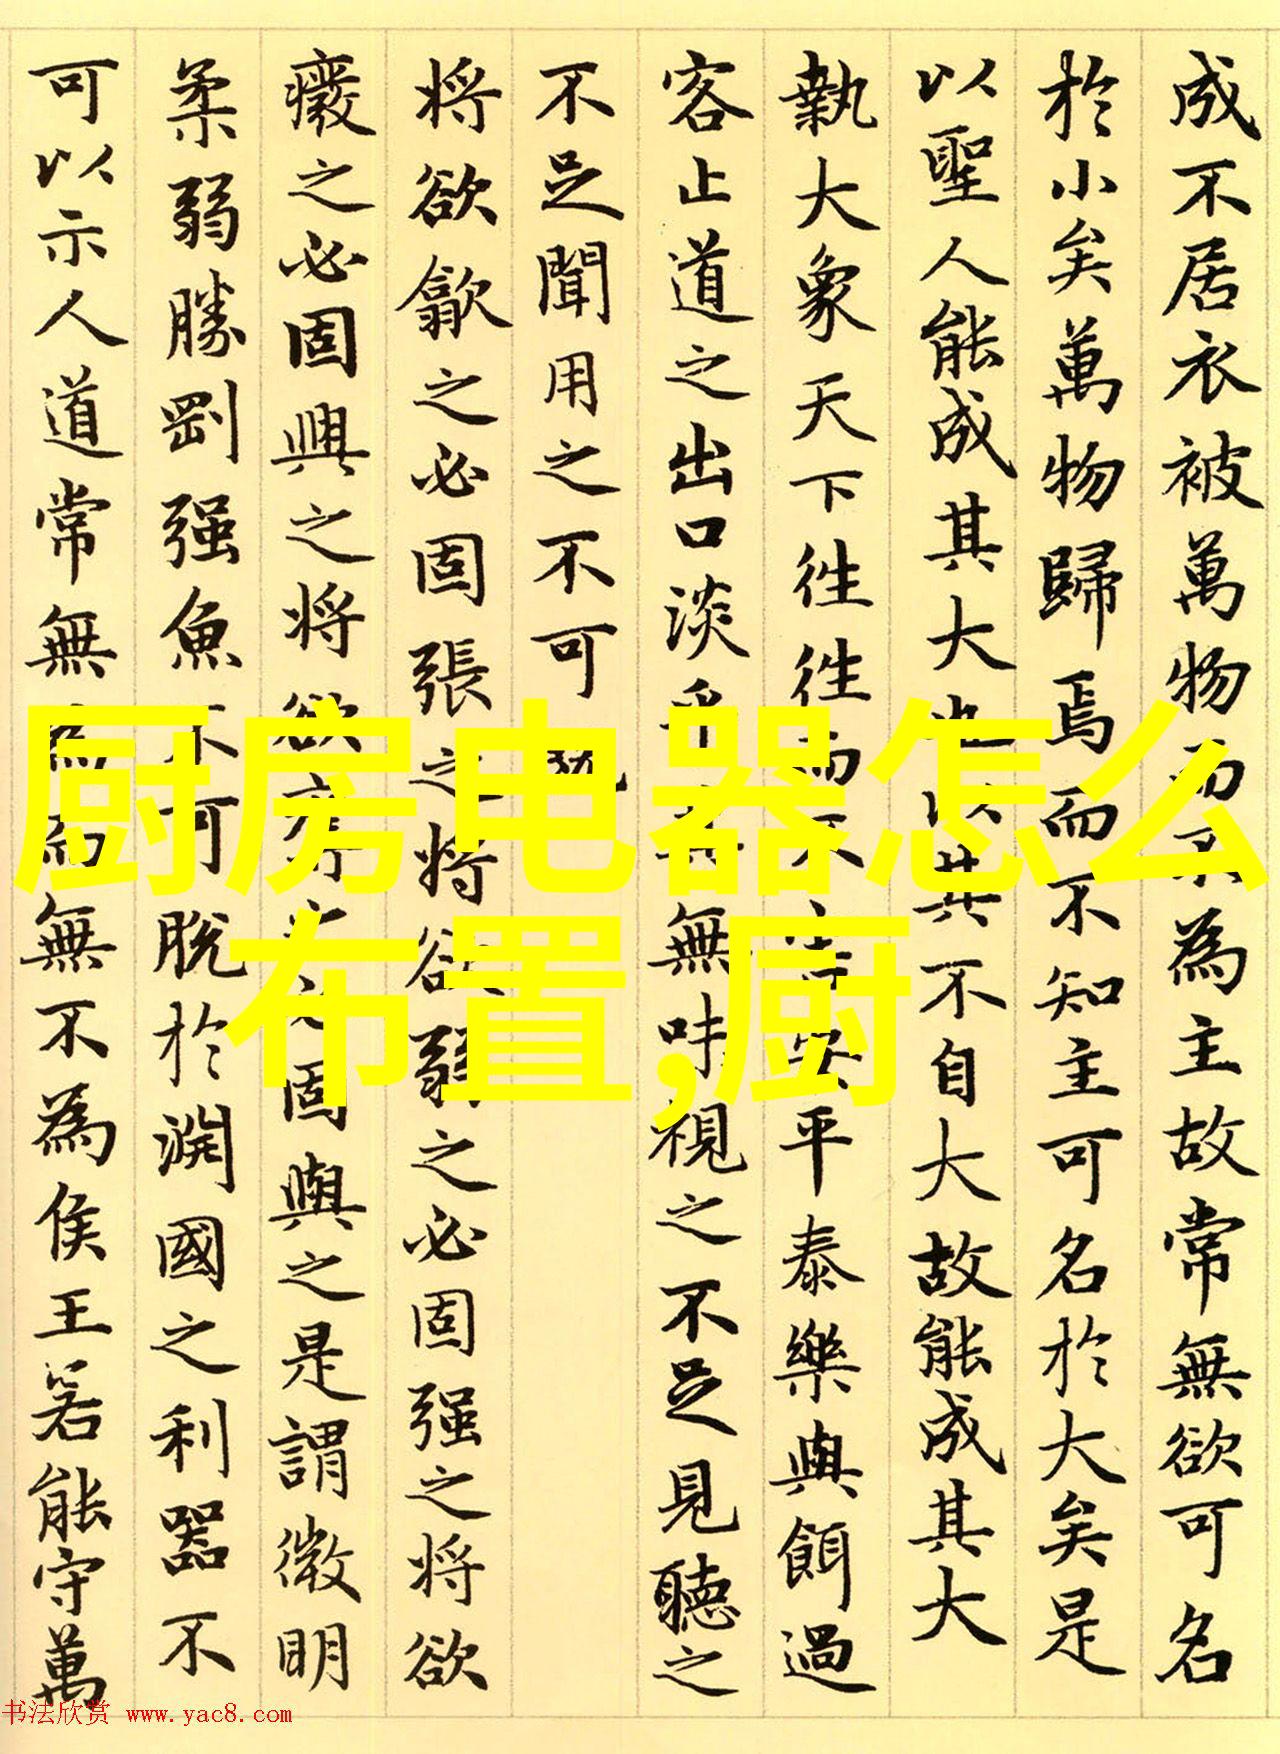 成不居衣被萬物而不為主故常無欲可名
於小矣萬物歸焉而不知主可名於大矣是
以聖人能成其大也以其不自大故能成其大
執大象天下徃徃而不害安平泰樂與餌過
客止道之出口淡乎其無味視之不足見聽之
不足聞用之不可既
將欲歙之必固張之將欲弱之必固强之將欲
癈之必固興之將欲奪之必固與之是謂微明
柔弱勝剛强魚不可脱於淵國之利器不
可以示人道常無為而無不為侯王若能守萬
厨房电器怎么
布置,厨
书法欣赏 www.yac8.com